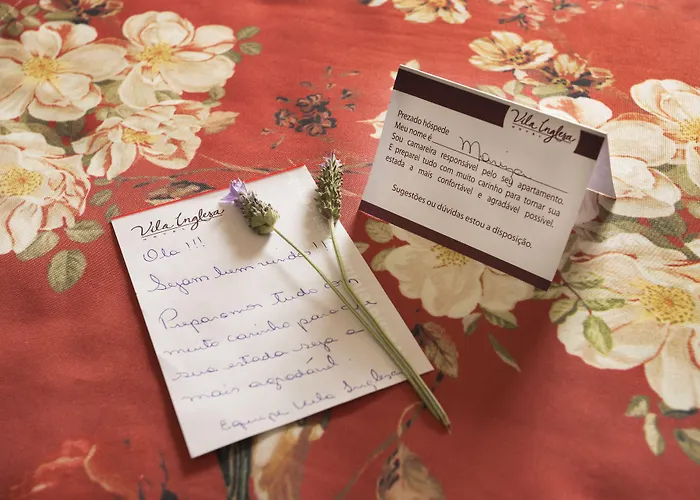 Vila Inglesa
Olá!!!
Sejam bem vindos!!!
Preparamos tudo com
muito carinho para que
sua estada seja a
mais agradável.
Equipe Vila Inglesa
Vila Inglesa
Prezado hóspede
Meu nome é
Sou camareira responsável pelo seu apartamento.
E preparei tudo com muito carinho para tornar sua
estada a mais confortável e agradável possível.
Sugestões ou dúvidas estou a disposição.